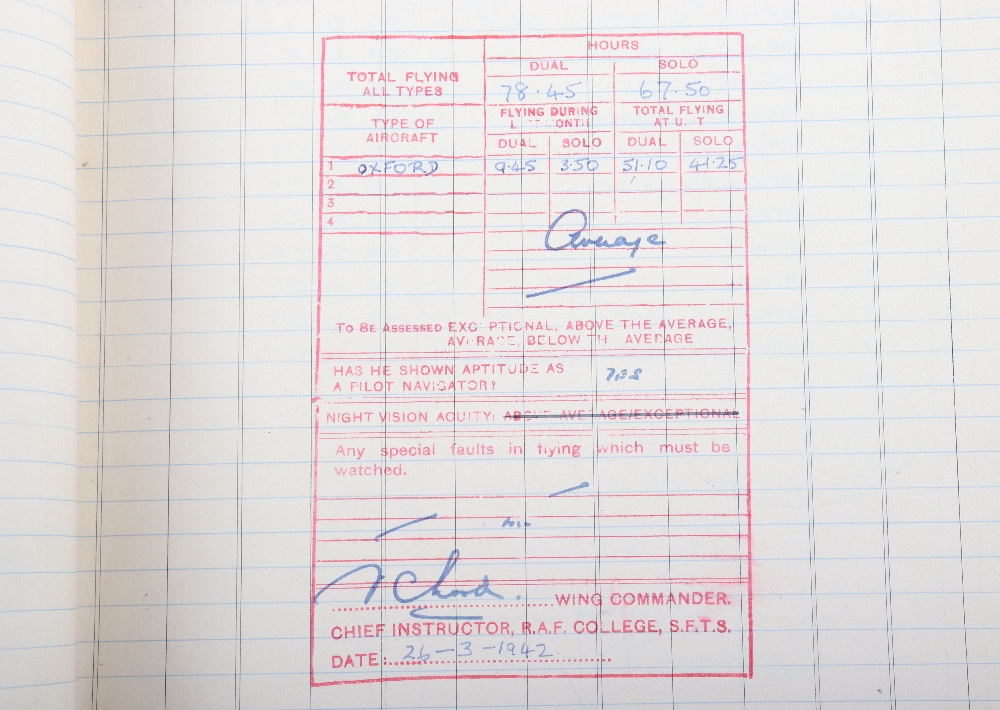 HOURS
TOTAL FLYING
ALL TYPES
DUAL SOLO
78.45 67.50
TYPE OF
AIRCRAFT
FLYING DURING
TOTAL FLYING
DUAL SOLO DUAL SOLO
1 OXFORD 9.45 3.50 51.10 41.25
2
3
4
Average
TO BE ASSESSED EXCEPTIONAL, ABOVE THE AVERAGE,
AVERAGE, BELOW THE AVERAGE
HAS HE SHOWN APTITUDE AS
A PILOT NAVIGATOR? Yes
NIGHT VISION ACUITY: ABOVE AVERAGE/EXCEPTIONAL
Any special faults in flying which must be
watched.
WING COMMANDER.
CHIEF INSTRUCTOR, R.A.F. COLLEGE, S.F.T.S.
DATE: 26-3-1942.